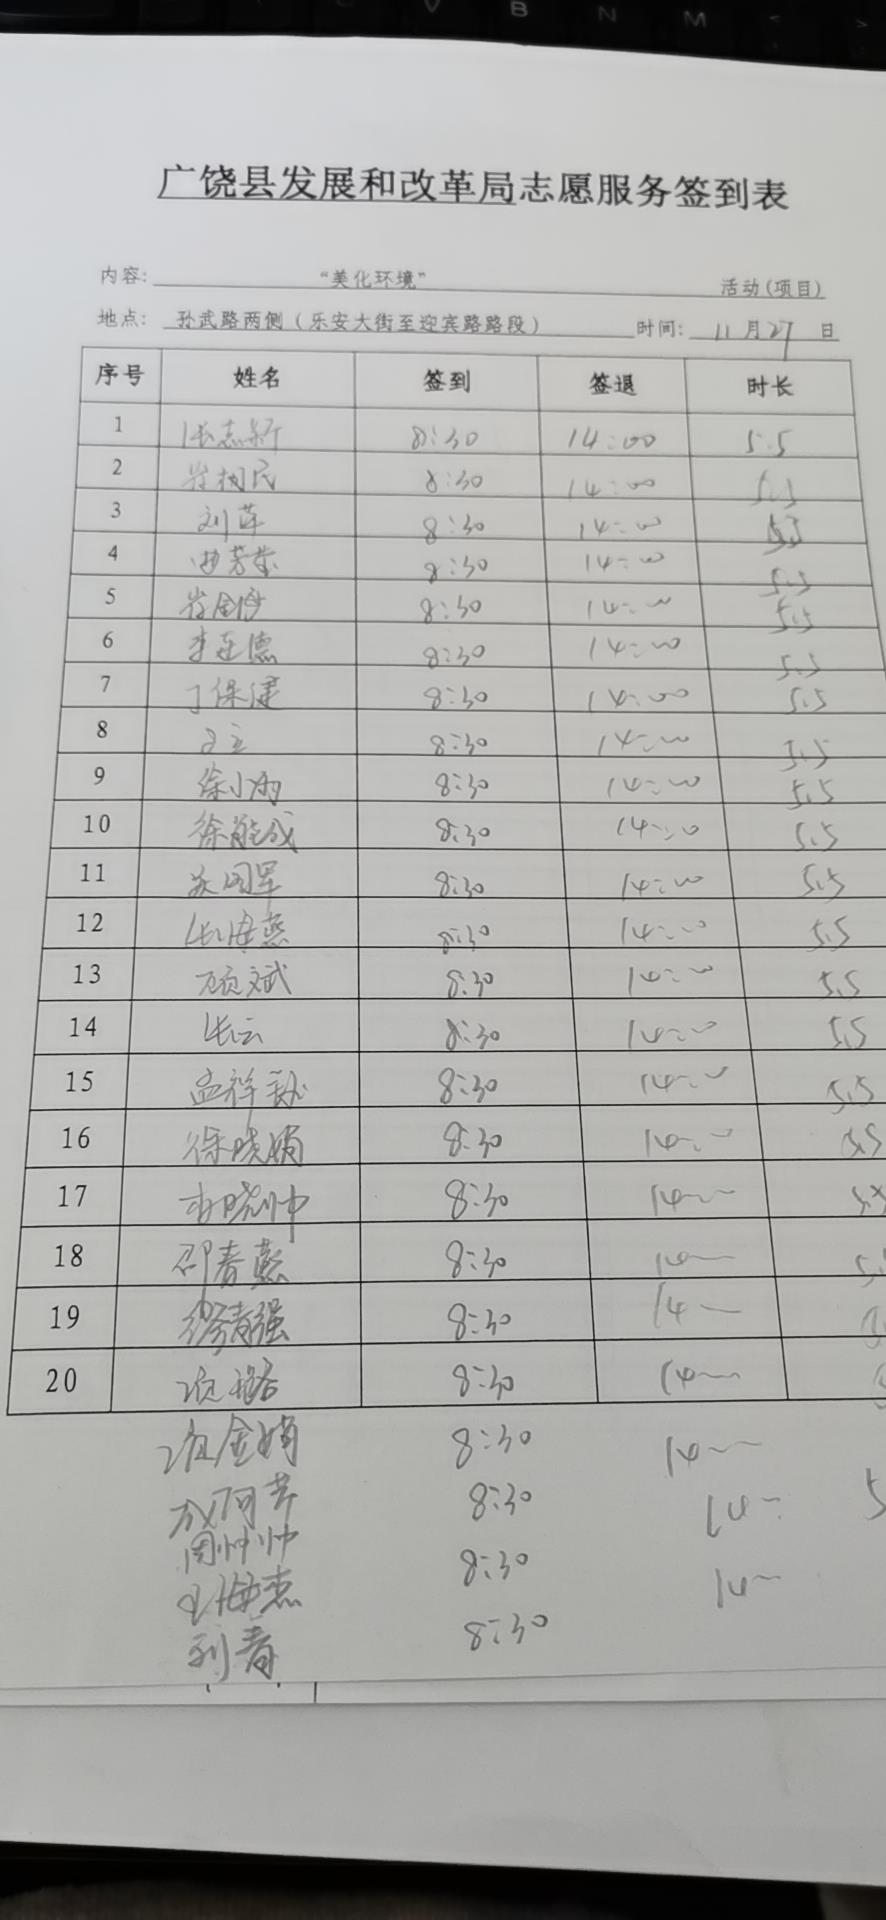 V B N M < >
广饶县发展和改革局志愿服务签到表
内容: “美化环境” 活动(项目)
地点: 孙武路两侧(乐安大街至迎宾路路段) 时间: 11月27日
序号 姓名 签到 签退 时长
1 张志新 8:30 14:00 5.5
2 崔相民 8:30 14:00 5.5
3 刘萍 8:30 14:00 5.5
4 8:30 14:00 5.5
5 8:30 14:00 5.5
6 李延德 8:30 14:00 5.5
7 丁保健 8:30 14:00 5.5
8 8:30 14:00 5.5
9 徐小雨 8:30 14:00 5.5
10 徐能成 8:30 14:00 5.5
11 8:30 14:00 5.5
12 张海燕 8:30 14:00 5.5
13 顾文斌 8:30 14:00 5.5
14 张云 8:30 14:00 5.5
15 8:30 14:00 5.5
16 徐晓娟 8:30 14:00 5.5
17 李晓帅 8:30 14 5.5
18 邵春燕 8:30 14 5.
19 缪青强 8:30 14
20 8:30 14
8:30 14
成阿芹 8:30 14: 5
周帅帅 8:30 14
王海燕 8:30
刘青